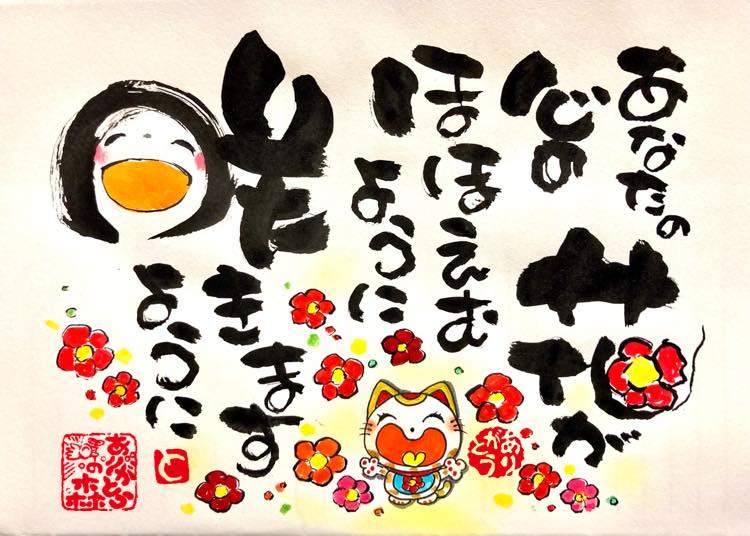 あなたの
心の
花が
ほほえむ
ように
咲きます
ように
ありがとう